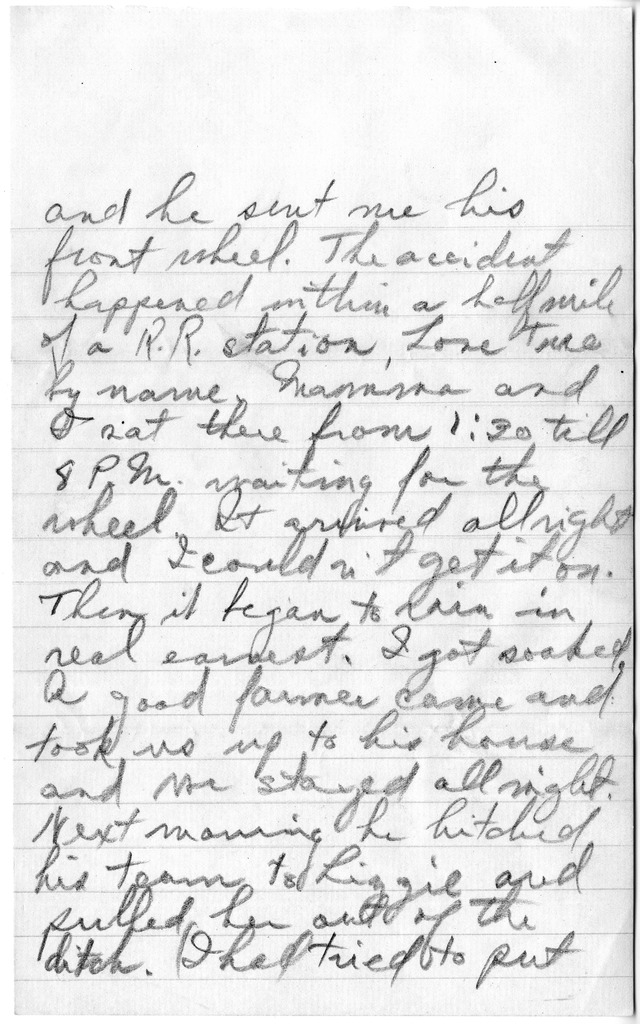 and he sent me his
front wheel. The accident
happened within a half mile
of a R.R. station, Lone Tree
by name. Mamma and
I sat there from 1:30 till
8 P.M. waiting for the
wheel. It arrived allright
and I couldn't get it on.
Then it began to rain in
real earnest. I got soaked.
A good farmer came and
took us up to his house
and we stayed all night.
Next morning he hitched
his team to Lizzie and
pulled her out of the
ditch. I had tried to put